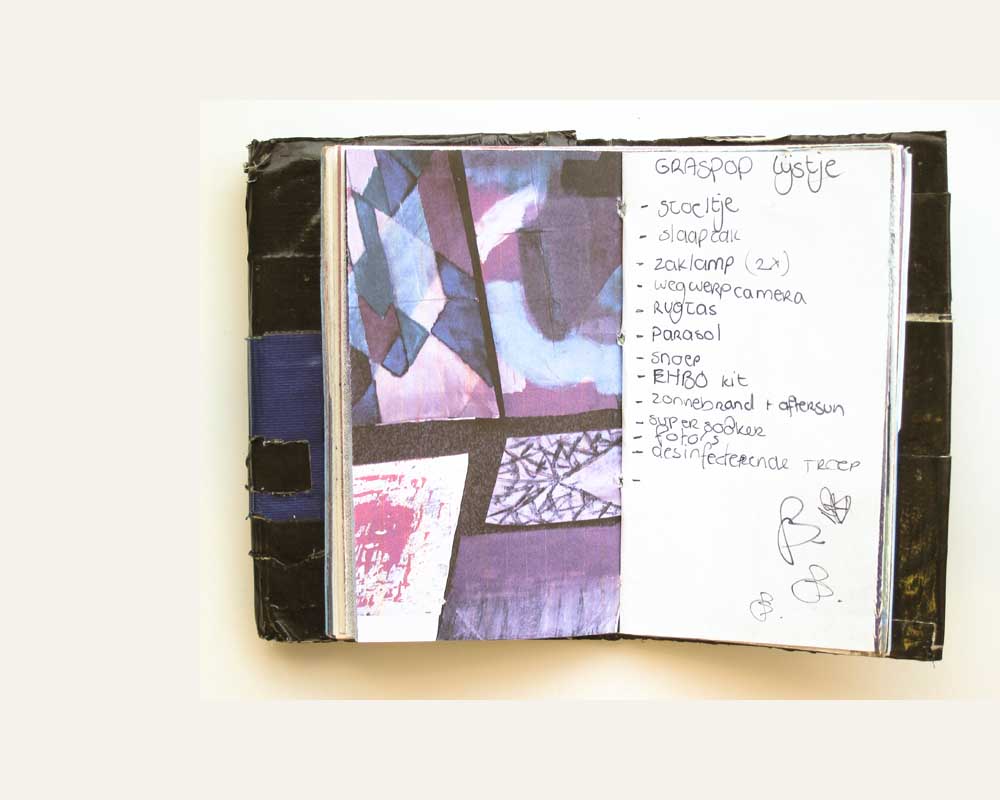 GRASPOP lijstje
- stoeltje
- slaapzak
- zaklamp (2x)
- wegwerpcamera
- Rugtas
- Parasol
- Snoep
- EHBO kit
- zonnebrand + aftersun
- supersoaker
- foto's
- desinfecterende TROEP
-